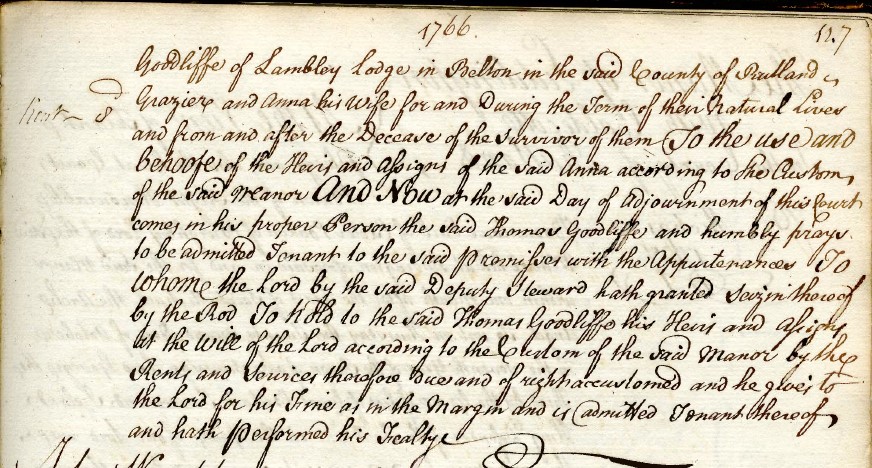 1766
117
Goodliffe of Lambley Lodge in Belton in the said County of Rutland
Rent 8d
Grazier and Anna his Wife for and During the Term of their Natural Lives
and from and after the Decease of the survivor of them To the use and
behoofe of the Heirs and Assigns of the said Anna according to The Custom
of the said Meanor And Now at the said Day of Adjournment of this Court
comes in his proper Person the said Thomas Goodliffe and humbly prays
to be admitted Tenant to the said Premisses with the Appurtenances To
whome the Lord by the said Deputy Steward hath granted Seizin thereof
by the Rod To hold to the said Thomas Goodliffe his Heirs and Assigns
at the Will of the Lord according to the Custom of the said Manor by the
Rents and Services therefore due and of right accustomed and he gives to
the Lord for his Fine as in the Margin and is admitted Tenant thereof
and hath Performed his Fealty